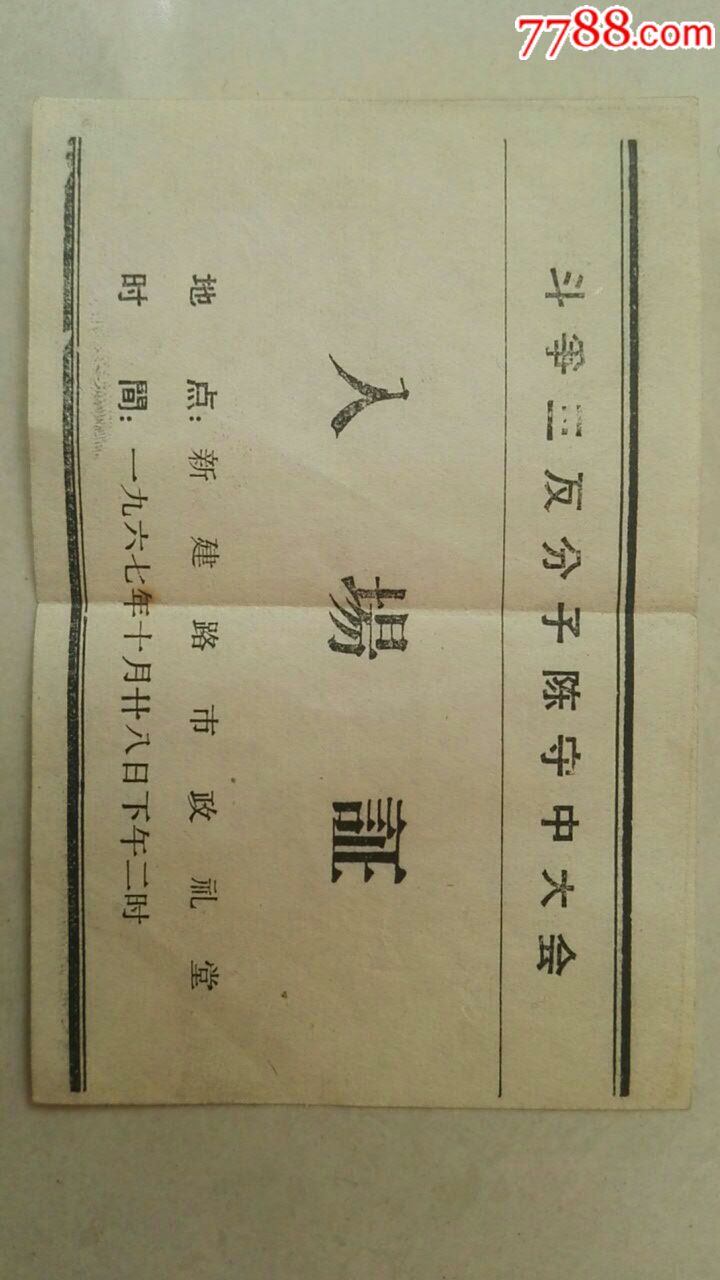 7788.com
斗争三反分子陈守中大会
入場証
地点：新建路市政礼堂
时間：一九六七年十月廿八日下午二时